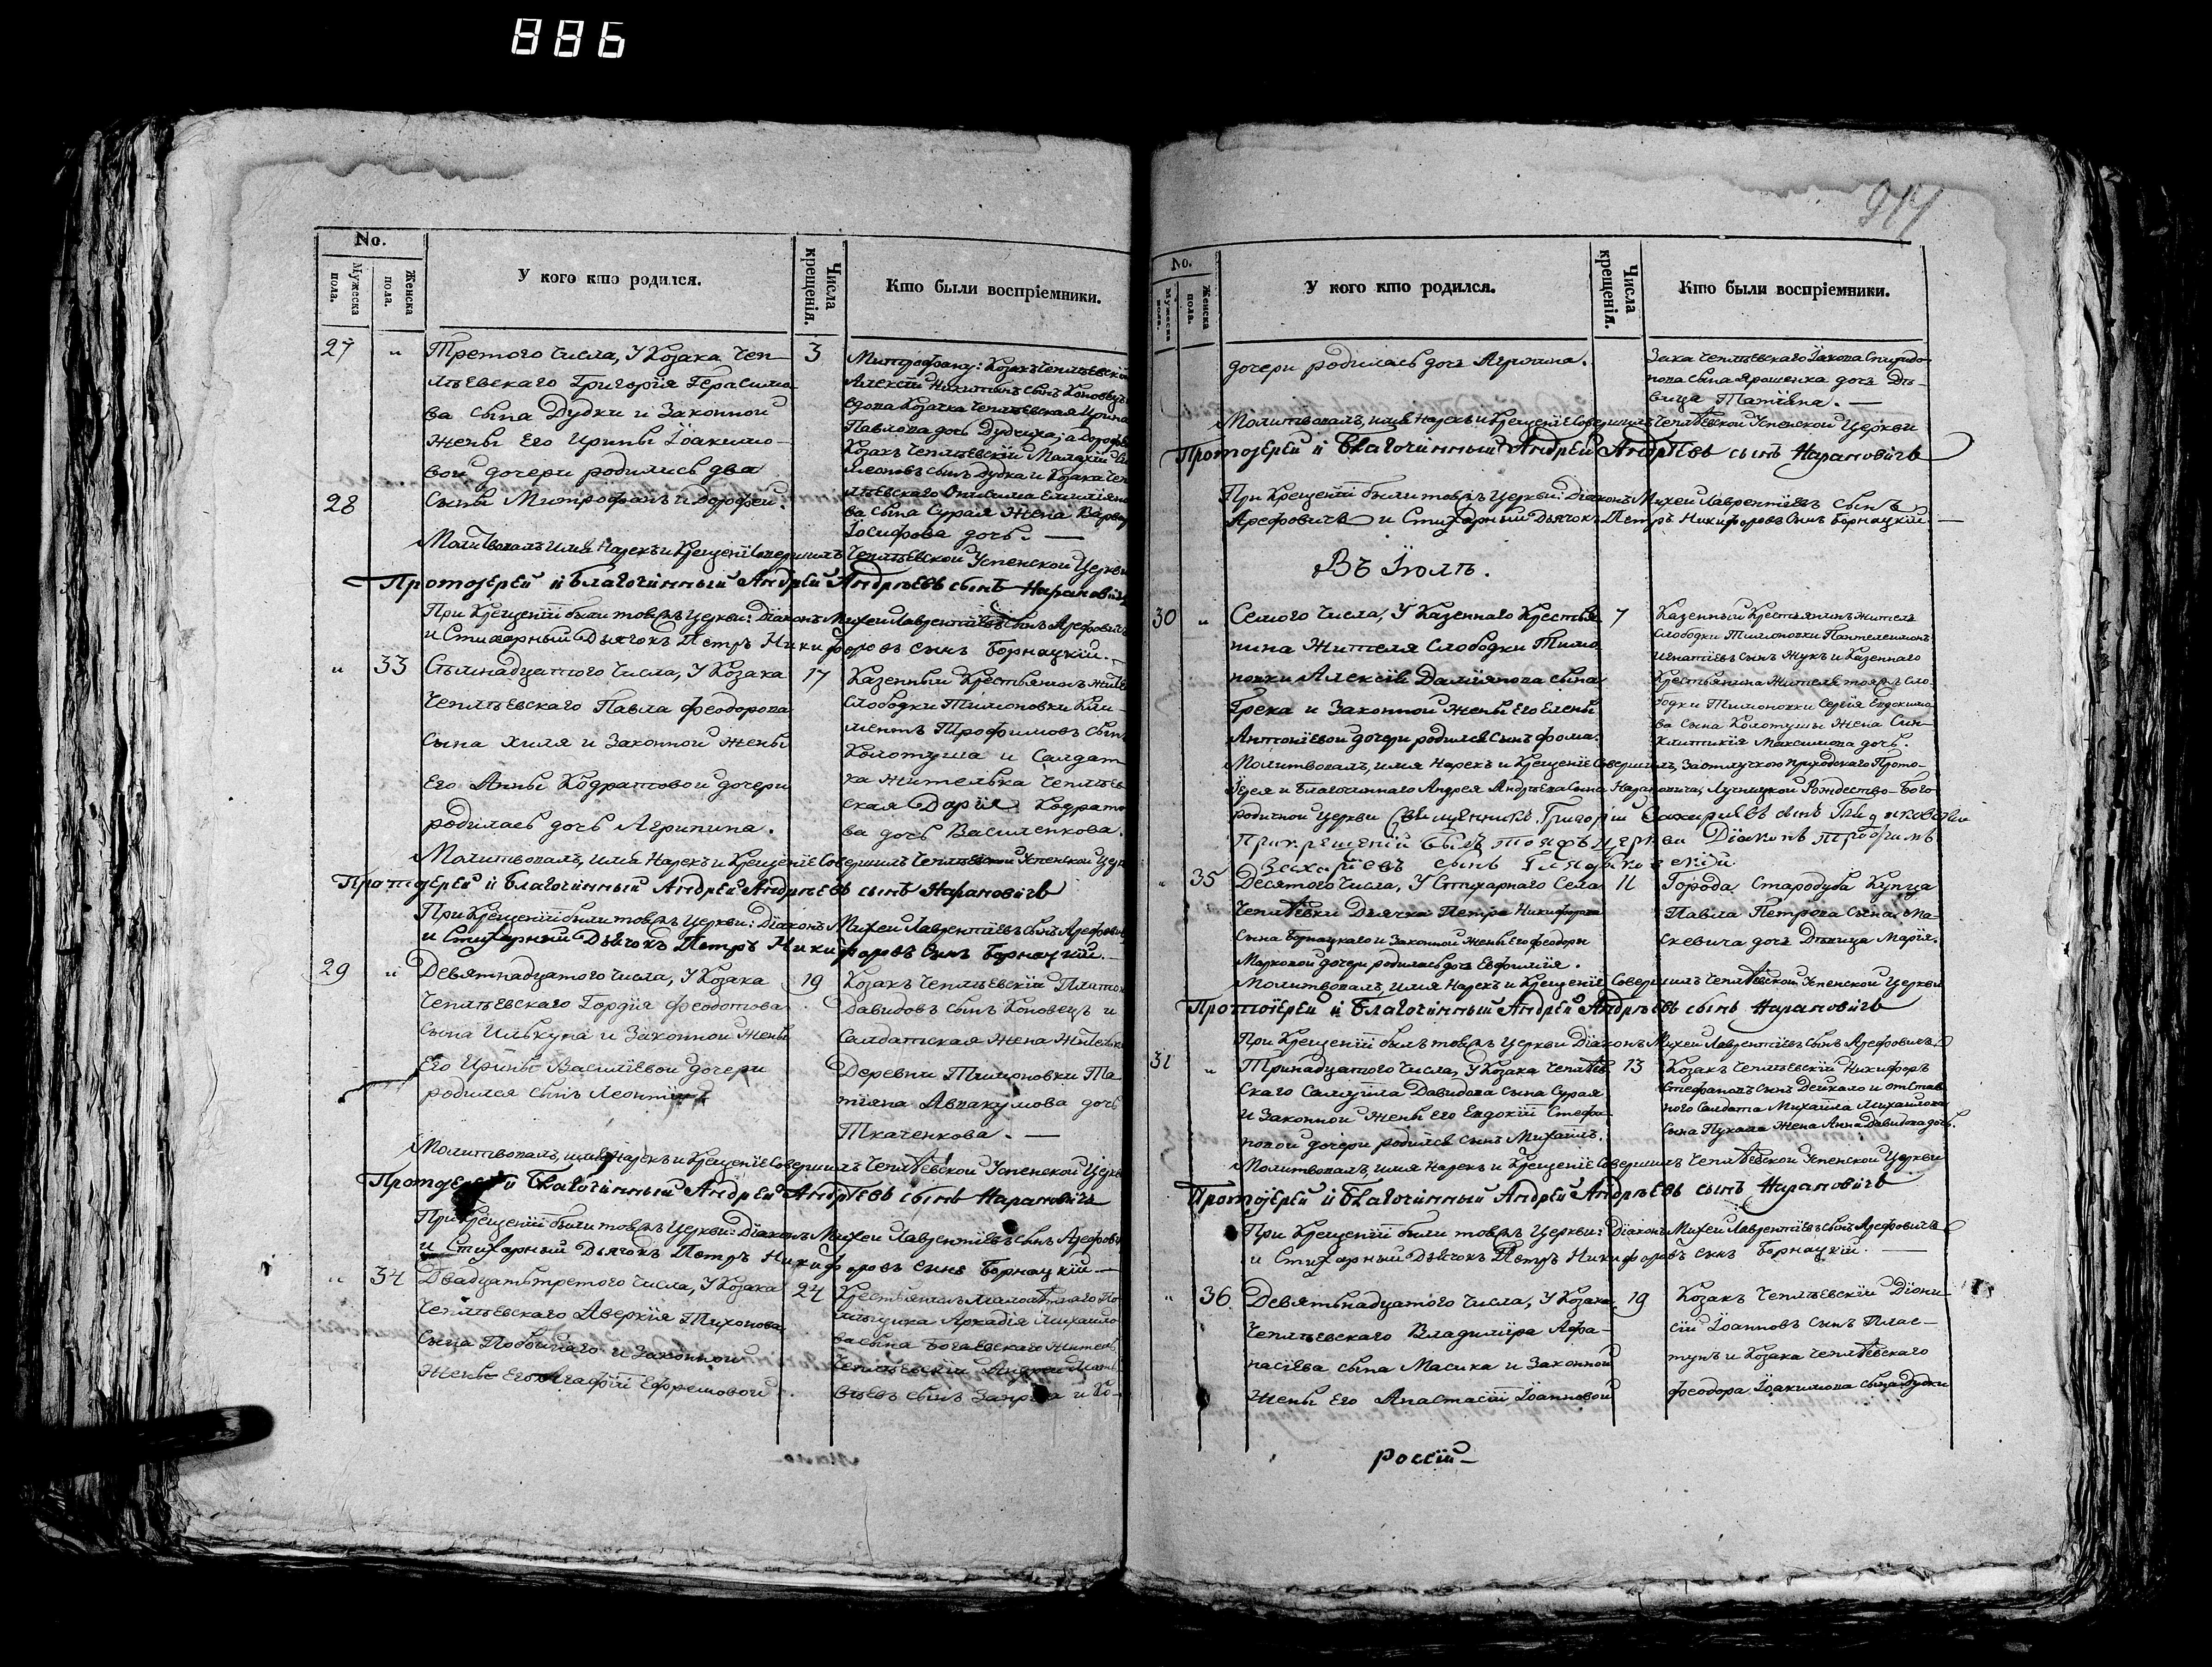 886
No.
Мужеска пола.
Женска пола.
У кого кто родился.
Числа крещенія.
Кто были воспріемники.
27 " Третого числа, У Козака Чеп-
лѣевскаго Григорія Герасимо
ва сына Дудки и Законной
жены Его Ирины Іоакимо-
вой дочери родились два
28 сыны Митрофанъ и Дорофей.
3 Митрофану: Козакъ Чеплѣевскій
Алексій Никитинъ сынъ Коновецъ
вдова Козачка Чеплѣевская Ирина
Павлова дочь Дудчиха; а Дорофею
Козакъ Чеплѣевскій Малахій
леоновъ сынъ Дудка и Козака Чеп
лѣевскаго Онисима Емиліяно
ва сына Сурая жена Варвар
Іосифова дочь. —
Молитвовалъ имя Нарекъ и Крещеніе Совершилъ Чеплѣевской Успенской Церкви
Протоіерей и Благочинный Андрей Андрѣевъ сынъ Нарановичъ
При Крещеніи были тояжъ Церкви: Діаконъ Михей Лаврентіевъ сынъ Арефовичъ
и Стихарный Дьячокъ Петръ Никифоровъ сынъ Борнацкій. —
" 33 Семнадцатого числа, У Козака
Чеплѣевскаго Павла Феодорова
сына Хиля и Законной жены
Его Анны Кодратовой дочери
родилась дочь Агрипина.
17 Казенный Крестьянинъ жите
Слободки Тимоновки Кли-
ментъ Трофимовъ сын
Колотуша и Салдат
ка жителька Чеплѣев
ская Дарія Кодрато
ва дочь Василенкова.
Молитвовалъ, имя Нарекъ и Крещеніе Совершилъ Чеплѣевской Успенской Цер
Протоіерей и Благочинный Андрей Андрѣевъ сынъ Нарановичъ
При Крещеніи были тояжъ Церкви: Діаконъ Михей Лаврентіевъ сынъ Арефович
и Стихарный Дьячокъ Петръ Никифоровъ сынъ Борнацкій. —
29 " Девятнадцатого числа, У Козака
Чеплѣевскаго Гордія Феодотова
сына Илькуна и Законной жены
Его Ирины Василіевой дочери
родился сынъ Леонтій
19 Козакъ Чеплѣевскій Плато
Давидовъ сынъ Коновецъ и
Салдатская жена жителька
Деревни Тимоновки Та
тіяна Авакумова дочь
Ткаченкова. —
Молитвовалъ, имя Нарекъ и Крещеніе Совершилъ Чеплѣевской Успенской Церкв
Протоіерей и Благочинный Андрей Андрѣевъ сынъ Нарановичъ
При Крещеніи были тояжъ Церкви: Діаконъ Михей Лаврентіевъ сынъ Арефов
и Стихарный Дьячокъ Петръ Никифоровъ сынъ Борнацкій —
" 34 Двадцатьтретого числа, У Козака
Чеплѣевскаго Аверкія Тихонова
сына и Законной
жены Его Агафіи Ефремовой
24 Крестьянинъ По
мѣщика Аркадія Михайло
ва сына Богаевскаго житель
Чеплѣевскій Андрей Мат
вѣевъ сынъ и Ко-
No.
Мужеска пола.
Женска пола.
У кого кто родился.
Числа крещенія.
Кто были воспріемники.
дочери родилась дочь Агрипина.
зака Чеплѣевскаго Іакова Спиридо
нова сына Ярошенка дочь Дѣ-
вица Татіяна. —
Молитвовалъ, имя Нарекъ и Крещеніе Совершилъ Чеплѣевской Успенской Церкви
Протоіерей и Благочинный Андрей Андрѣевъ сынъ Нарановичъ
При Крещеніи были тояжъ Церкви: Діаконъ Михей Лаврентіевъ сынъ
Арефовичъ и Стихарный Дьячокъ Петръ Никифоровъ сынъ Борнацкій. —
Въ Іюлѣ.
30 " Семого числа, У Казеннаго Крестья
нина жителя Слободки Тимо
новки Алексія Даміянова сына
Грека и Законной жены Его Елены
Антоніевой дочери родился сынъ Фома.
7 Казенный Крестьянинъ житель
Слободки Тимоновки Пантелеимонъ
Игнатіевъ сынъ Жукъ и Казеннаго
Крестьянина жителя тояжъ сло
бодки Тимоновки Сергія Евдокимо
ва сына Колотуши жена Син-
клитикія Максимова дочь.
Молитвовалъ, имя Нарекъ и Крещеніе Совершилъ, За отлучкою приходскаго Прото-
іерея и Благочиннаго Андрея Андрѣева сына Нарановича, Лучницкой Рождество-Бого
родичной Церкви Священникъ Григорій Захаріевъ сынъ
При крещеніи былъ тояжъ церкви Діаконъ Трофимъ
Захаріевъ сынъ
" 35 Десятого числа, У Стихарнаго Села
Чеплѣевки Дьячка Петра Никифорова
сына Борнацкаго и Законной жены Его Феодоры
Марковой дочери родилась дочь Евфимія.
11 Города Стародуба Купца
Павла Петрова сына Ма-
скевича дочь Дѣвица Марія.
Молитвовалъ, имя Нарекъ и Крещеніе Совершилъ Чеплѣевской Успенской Церкви
Протоіерей и Благочинный Андрей Андрѣевъ сынъ Нарановичъ
При Крещеніи былъ тояжъ Церкви Діаконъ Михей Лаврентіевъ сынъ Арефовичъ
31 " Тринадцатого числа, У Козака Чеплѣев
скаго Самуила Давидова сына Сурая
и Законной жены Его Евдокіи Стефа
новой дочери родился сынъ Михаилъ.
13 Козакъ Чеплѣевскій Никифоръ
Стефановъ сынъ Дейкало и отстав
ного Салдата Михаила Михаилова
сына Пукала жена Анна Давидова дочь.
Молитвовалъ, имя Нарекъ и Крещеніе Совершилъ Чеплѣевской Успенской Церкви
Протоіерей и Благочинный Андрей Андрѣевъ сынъ Нарановичъ
При Крещеніи были тояжъ Церкви: Діаконъ Михей Лаврентіевъ сынъ Арефовичъ
и Стихарный Дьячокъ Петръ Никифоровъ сынъ Борнацкій. —
" 36 Девятьнадцатого числа, У Козака
Чеплѣевскаго Владиміра Афа-
насіева сына Масика и Законной
жены Его Анастасіи Іоанновой
19 Козакъ Чеплѣевскій Діони-
сій Іоанновъ сынъ Плас-
тунъ и Козака Чеплѣевскаго
Феодора Іоакимова сына Дудки
россій-